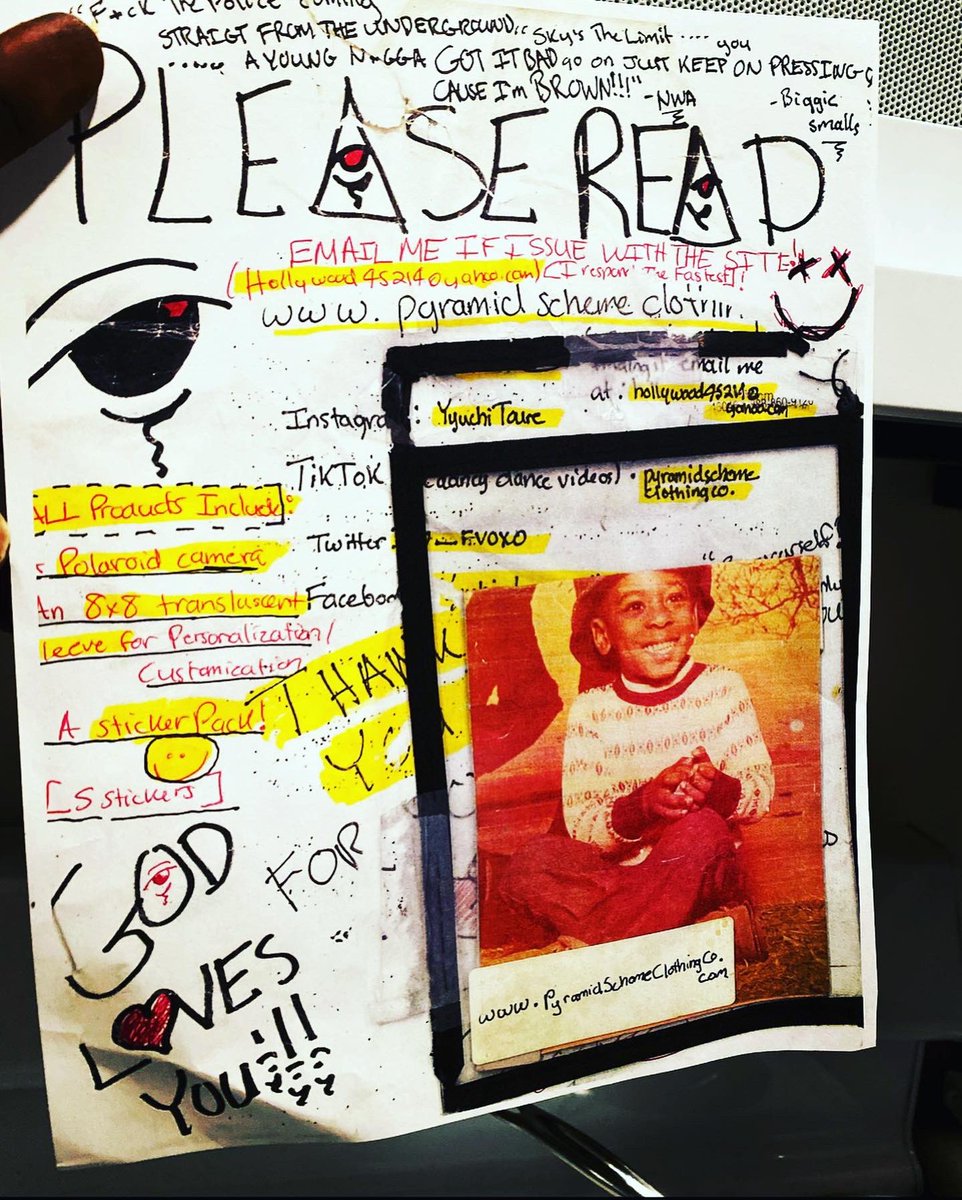 "F*ck The Police coming
STRAIGT FROM THE UNDERGROUND.. "Sky's The Limit .... you
A YOUNG N*GGA GOT IT BAD go on JUST KEEP ON PRESSING
CAUSE I'm BROWN!!!" -NWA
-Biggie
smalls
PLEASE READ
EMAIL ME IF ISSUE WITH THE SITE!
(Hollywood45214@yahoo.com) (I respond The Fastest)!
www. pyramid scheme clothin
email me
at: hollywood45214@
yahoo.com
Instagra : YyuchiTaire
TikTok dance videos) . pyramidscheme
clothingco.
Twitter FVOXO
Facebo
ALL Products Include:
Polaroid camera
An 8x8 transluscent
leeve for Personalization/
Customization
A sticker Pack!
[5 stickers]
THANK
YOU
FOR
GOD
LOVES
YOU!!!
www.PyramidSchemeClothingCo.
com